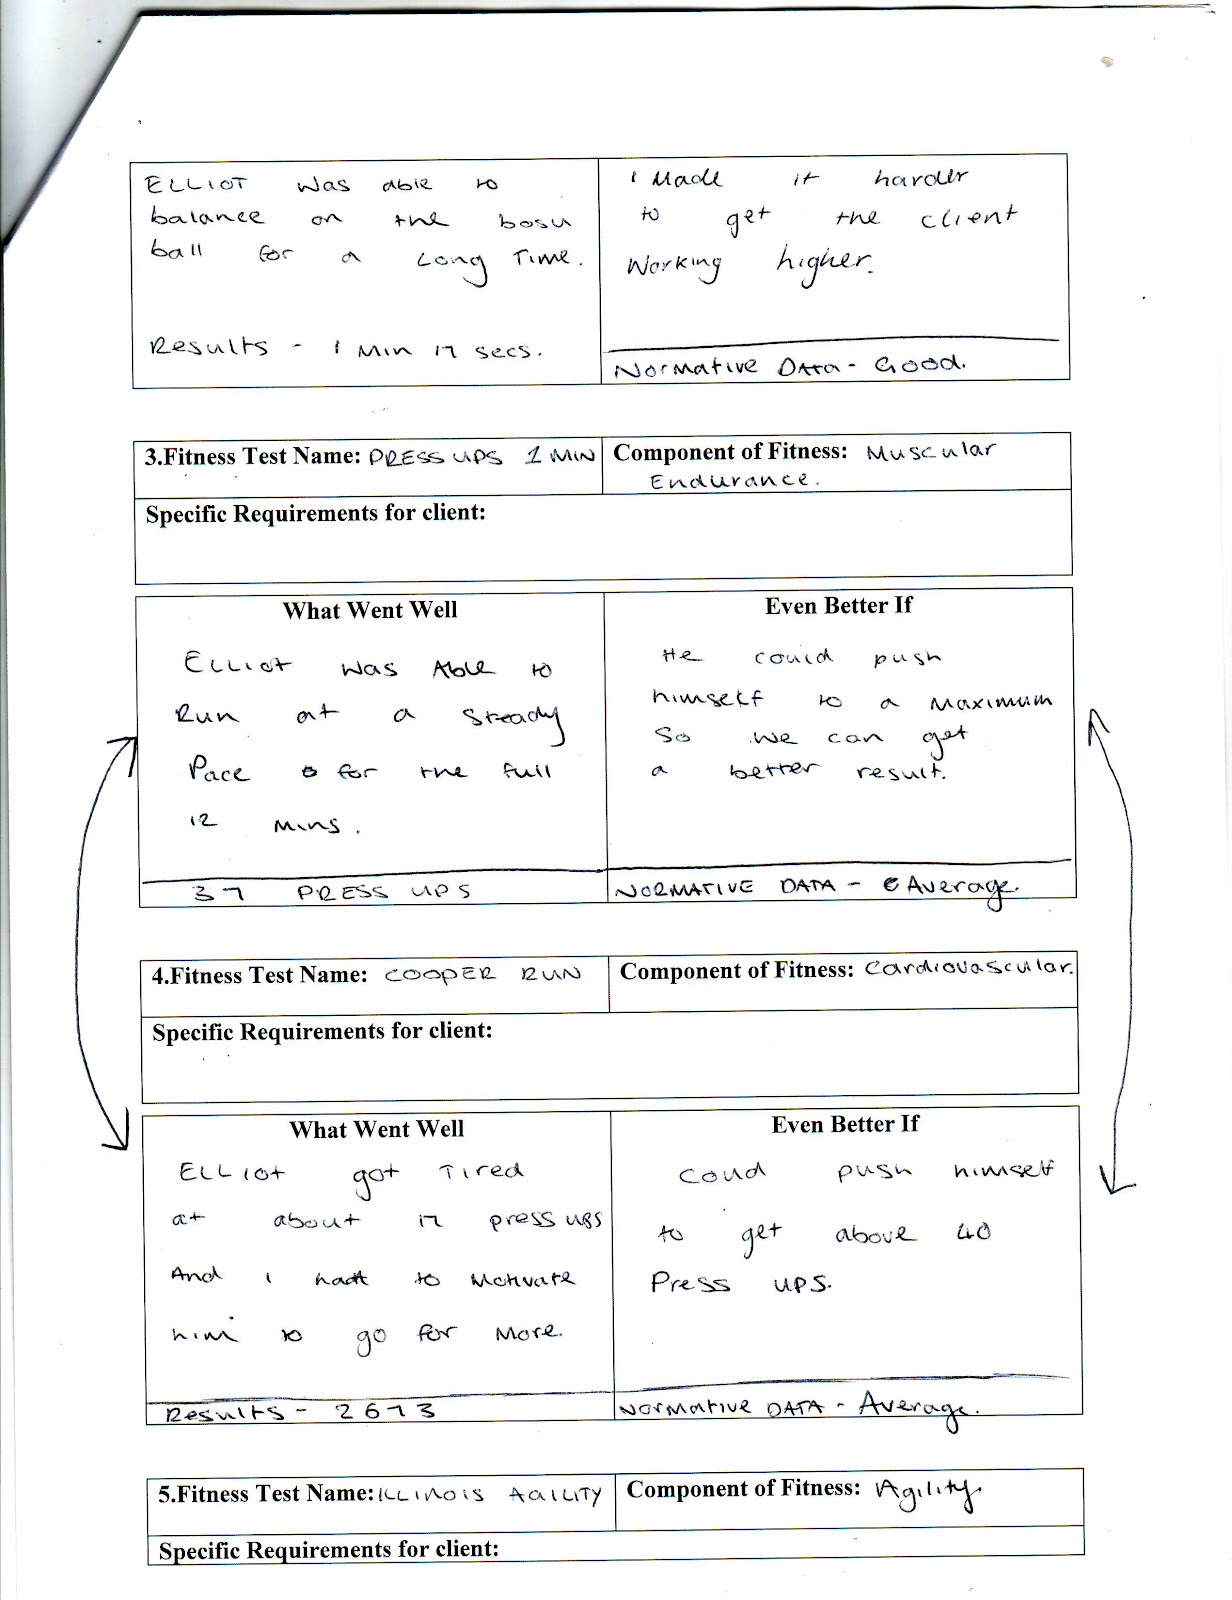 ELLIOT was able to
balance on the bosu
ball for a Long Time.
Results - 1 Min 17 secs.
I Made it harder
to get the client
Working higher.
Normative DAta - Good.
3.Fitness Test Name: PRESS UPS 1 MIN
Component of Fitness: Muscular
Endurance.
Specific Requirements for client:
What Went Well
Elliot was Able to
Run at a steady
Pace for the full
12 mins.
37 PRESS UPS
Even Better If
He could push
himself to a maximum
so we can get
a better result.
NORMATIVE DATA - Average.
4.Fitness Test Name: COOPER RUN
Component of Fitness: Cardiovascular.
Specific Requirements for client:
What Went Well
ELLIOT got Tired
at about 17 press ups
And i had to Motivate
him to go for More.
Results - 2673
Even Better If
Coud push himself
to get above 40
Press ups.
Normative DATA - Average.
5.Fitness Test Name: ILLINOIS AGILITY
Component of Fitness: Agility.
Specific Requirements for client: